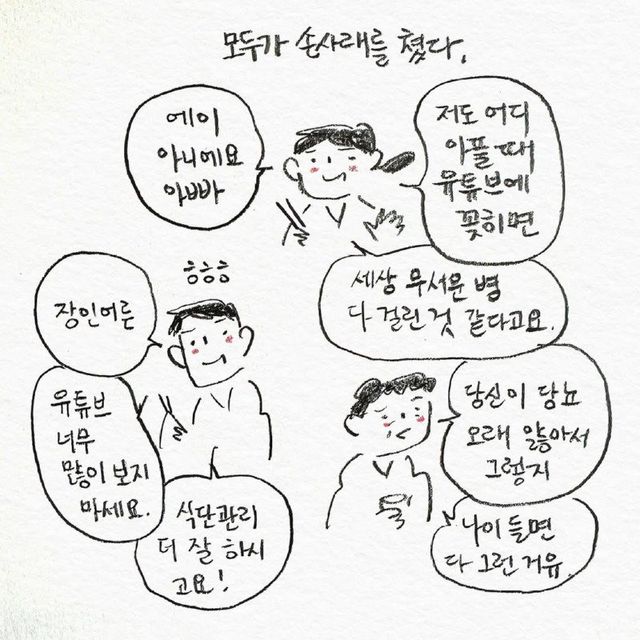 모두가 손사래를 쳤다.
에이
아니에요
아빠
저도 어디
아플 때
유튜브에
꽂히면
세상 무서운 병
다 걸린 것 같다고요.
흐흐흐
장인어른
유튜브
너무
많이 보지
마세요.
식단관리
더 잘 하시
고요!
당신이 당뇨
오래 앓아서
그렇지
나이 들면
다 그런 거유.